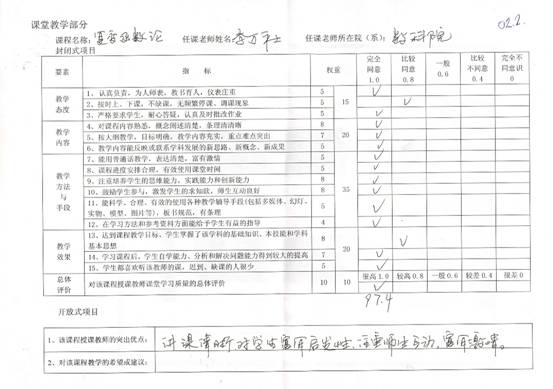 课堂教学部分
02.2.
课程名称: 复变函数论 任课老师姓名 任课老师所在院（系）: 数科院
封闭式项目
要素 指 标 权重 完全同意 1.0 比较同意 0.8 一般 0.6 比较不同意 0.4 完全不同意识 0
教学态度 1、认真负责，为人师表，教书育人，仪表庄重 5 15 ✓
2、按时上、下课，不缺课，无频繁停课、调课现象 5 ✓
3、严格要求学生，耐心答疑，认真及时批改作业 5 ✓
教学内容 4、对课程内容熟悉，概念阐述清楚，条理清清晰 8 20 ✓
5、按大纲教学，目标明确，教学内容充实，重点难点突出 7 ✓
6、教学内容能反映或联系学科发展的新思路、新概念、新成果 5 ✓
教学方法与手段 7、能用普通话教学，表达清楚，富有激情 5 35 ✓
8、课程进度安排合理，有效使用课堂时间 5 ✓
9、注重培养学生的思维能力、实践能力和创新能力 8 ✓
10、鼓励学生参与，激发学生的求知欲，师生互动良好 8 ✓
11、能科学、合理、有效的使用各种教学辅导手段(包括多媒体、幻灯、实物、模型、图片等)，板书规范，有条理 5 ✓
12、在学习方法和参考资料方面能给予学生有益的指导 4 ✓
教学效果 13、达到课程教学目标、学生掌握了该学科的基础知识、本技能和学科基本思想 8 20 ✓
14、学习课程后，学生自学能力、分析和解决问题能力得到较大的提高 7 ✓
15、学生都喜欢听该教师的课，迟到、缺课的人很少 5 ✓
总体评价 对该课程授课教师课堂学习质量的总体评价 10 10 很高 1.0 较高 0.8 一般 0.6 较差 0.4 很差 0
✓
97.4
开放式项目
1、该课程授课教师的突出优点: 讲课清晰 对学生富有启发性、注重师生互动，富有激情。
2、对该课程教学的希望或建议: